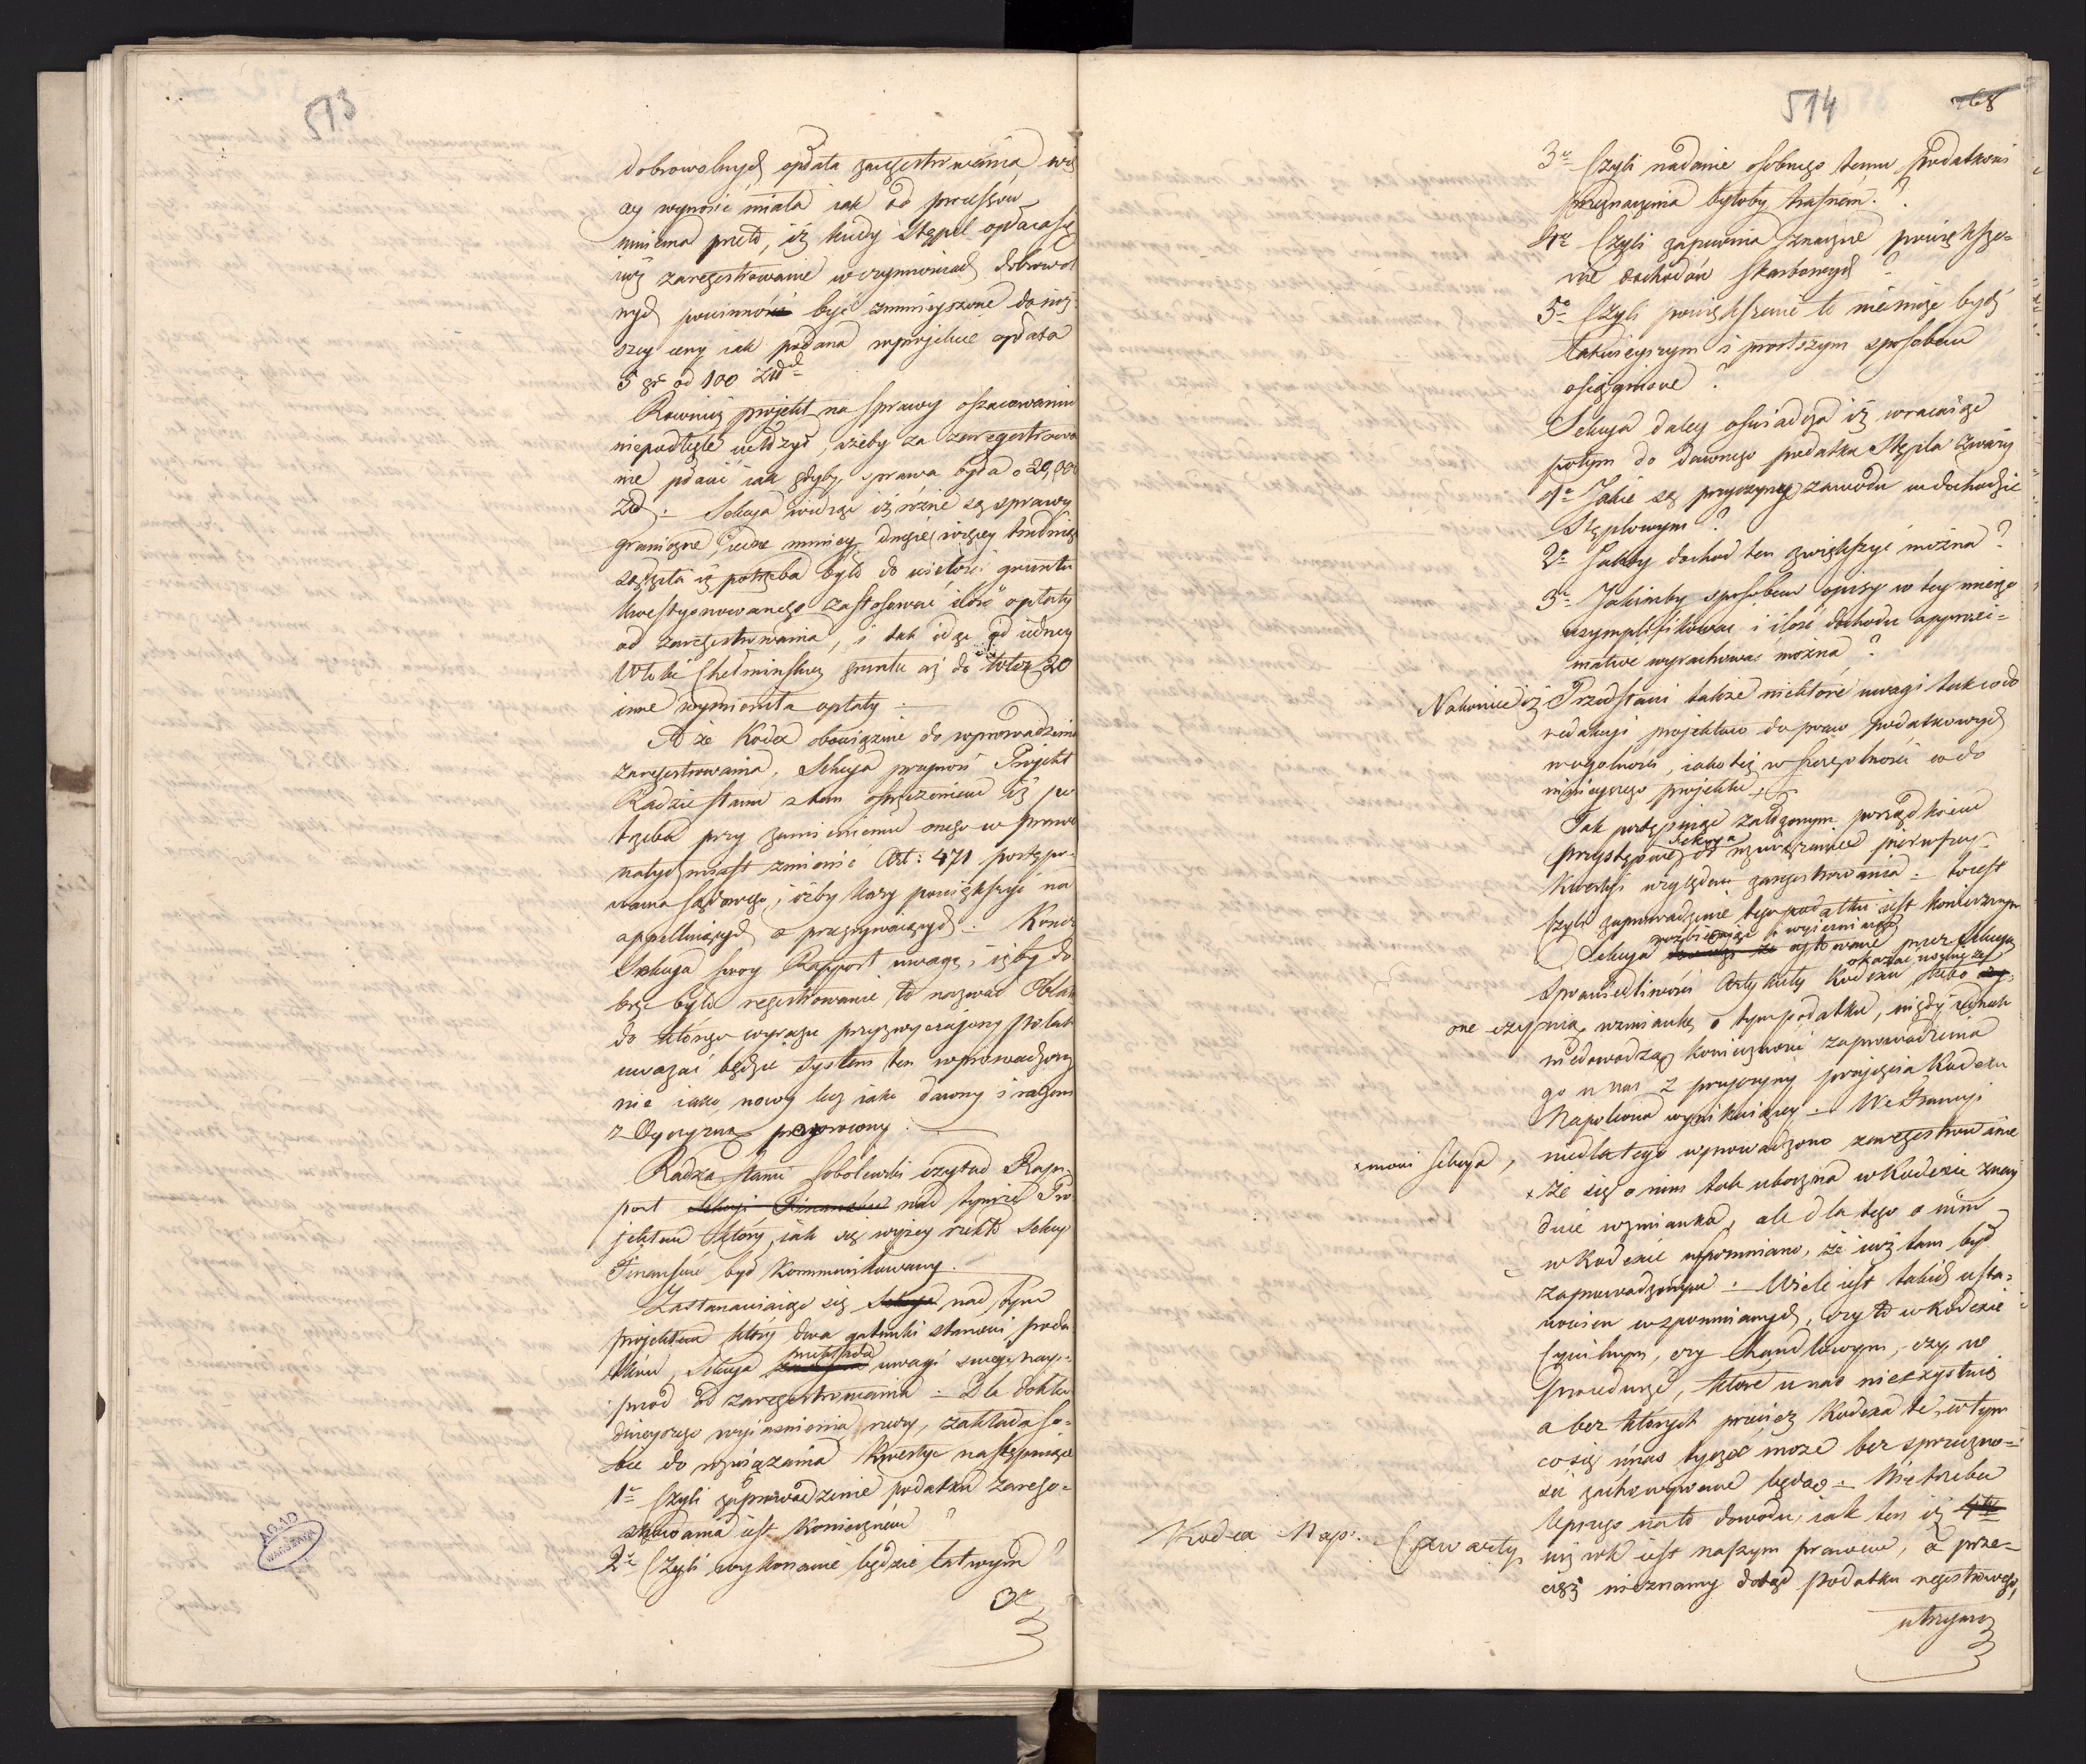 513
dobrowolnych opłata zaregestrowania, wię
cey wynosić miała iak od processów
mniema przeto, iż kiedy Stępel opłaca się
iuż zaregestrowanie w czynnościach dobrowol
nych powinno być zmnieyszone do niż-
szey ceny iak podana w projekcie opłata
5 gr od 100 Złł
Rownież projekt na sprawy oszacowaniu
niepodległe ułożył, ażeby za zaregestrowa
nie płacić iak gdyby sprawa była o 20,000
Zł. Sekcya widząc iż różne są sprawy
graniczne, iedne mniey drugie więcey trudniące
sądziła iż potrzeba było do wielości gruntu
kwestyonowanego zastosować ilość opłaty
od zaregestrowania, i tak idąc od iedney
Włoki Chełmińskiey gruntu aż do włok 20
inne wymieniła opłaty.
A że Kodex obowiązuie do wprowadzenia
zaregestrowania, Sekcya przynosi Projekt
Radzie Stanu z tem ostrzeżeniem iż po
trzeba przy zamienieniu onego w prawo
natychmiast zmienić Art: 471 postępo-
wania sądowego, i żeby kary powiększyć na
appelluiących a przegrywaiących. Kończy
Sekcya swoy Rapport uwagą, iżby do
brze było regestrowanie to nazwać Oblatą
do którego wyrazu przyzwyczajony Polak
uważać będzie system ten wprowadzony
nie iako nowy lecz iako dawny i razem
z Oyczyzną przywrócony.
Radzca Stanu Sobolewski czytał Rap-
port Sekcyi Finansów nad tymże Pro
jektem który, iak się wyżey rzekło Sekcyi
Finansów był kommunikowany.
Zastanawiaiąc się Sekcya nad tym
projektem który dwa gatunki stanowi poda
tków, Sekcya przekłada uwagi swoie nay-
przod od zaregestrowania. Dla dokła
dnieyszego wyiaśnienia rzeczy, zakłada so-
bie do rozwiązania kwestye następuiące
1e Czyli zaprowadzenie podatku zarege-
strowania iest koniecznem?
2e Czyli wykonanie będzie łatwym?
3e
514
168
3e Czyli nadanie osobnego temu podatkowi
przeznaczenia byłoby trafnem?
4e Czyli zapewnia znaczne powiększe-
nie dochodów skarbowych?
5e Czyli powiększenie to nie może bydź
łatwieyszym i prostszym sposobem
osiągnione?
Sekcya daley oświadcza iż wracaiąc
potym do dawnego podatku Stępla zważy
1e Jakie są przyczyny zawodu w dochodzie
Stęplowym?
2e Jakby dochod ten zwiększyć można?
3e Jakimby sposobem opisy w tey mierze
uzymplifikować i ilość dochodu approxi-
mative wyrachować można?
Nakoniec iż Przedstawi także niektóre uwagi tak co do
redakcyi projektow do praw podatkowych
w ogolności, iako też w szczególności co do
ninieyszego projektu.
Tak postępuiąc założonym porządkiem
przystępuie Sekcya do rozwiązania pierwszey
kwestyi względem zaregestrowania. to iest
Czyli zaprowadzenie tego podatku iest koniecznym
Sekcya rozbieraiąc i wycieniaiąc
cytowane przez Sekcyą
Sprawiedliwości Artykuły Kodexu okazać usiłuie, że lubo
one czynią wzmiankę o tym podatku, nigdy iednak
nie dowodzą konieczności zaprowadzenia
go u nas, z przyczyny przyięcia Kodexu
Napoleona wynikaiącey. We Francyi
x mowi Sekcya, nie dla tego wprowadzono zaregestrowanie
x że się o nim tak uboczna w Kodexie znay
duie wzmianka, ale dla tego o nim
w Kodexie wspomniano, że iuż tam był
zaprowadzonym. Wiele iest takich usta-
nowień wspomnianych, czy to w Kodexie
Cywilnym, czy Handlowym, czy w
procedurze, które u nas nie exystuią
a bez których przecież Kodexa te, w tym
co się u nas tycze może bez sprzeczno-
ści zachowywane będą. Nie trzeba
lepszego na to dowodu, iak ten iż 4ty
Kodex Nap. Czwarty iuż rok iest naszym prawem, a prze-
cież nieznamy dotąd podatku regestrowego,
utrzymu